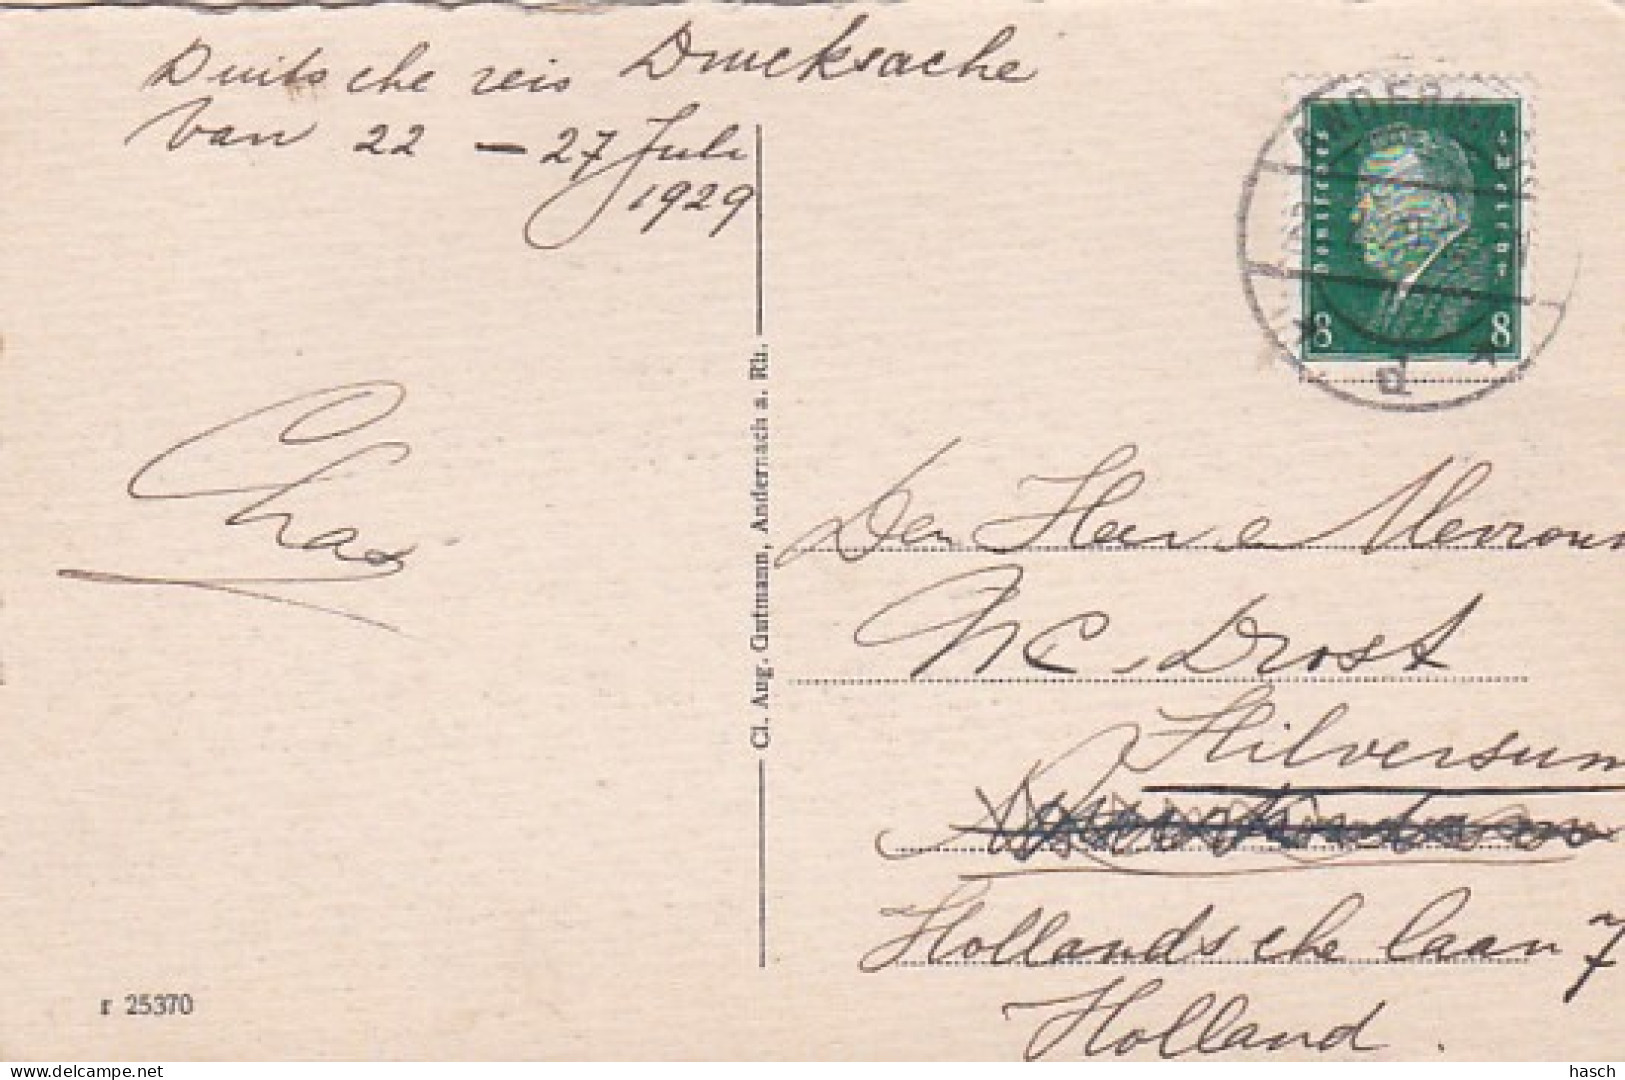 Duitsche reis Drucksache
Van 22 - 27 Juli
1929
Chas
Cl. Aug. Gutmann, Andernach a. Rh.
r 25370
ANDERN
Deutsches Reich
8 8
d
Den Heer en Mevrouw
N.C. Drost
Hilversum
Hollandsche laan 7
Holland.
delcampe.net
hasch